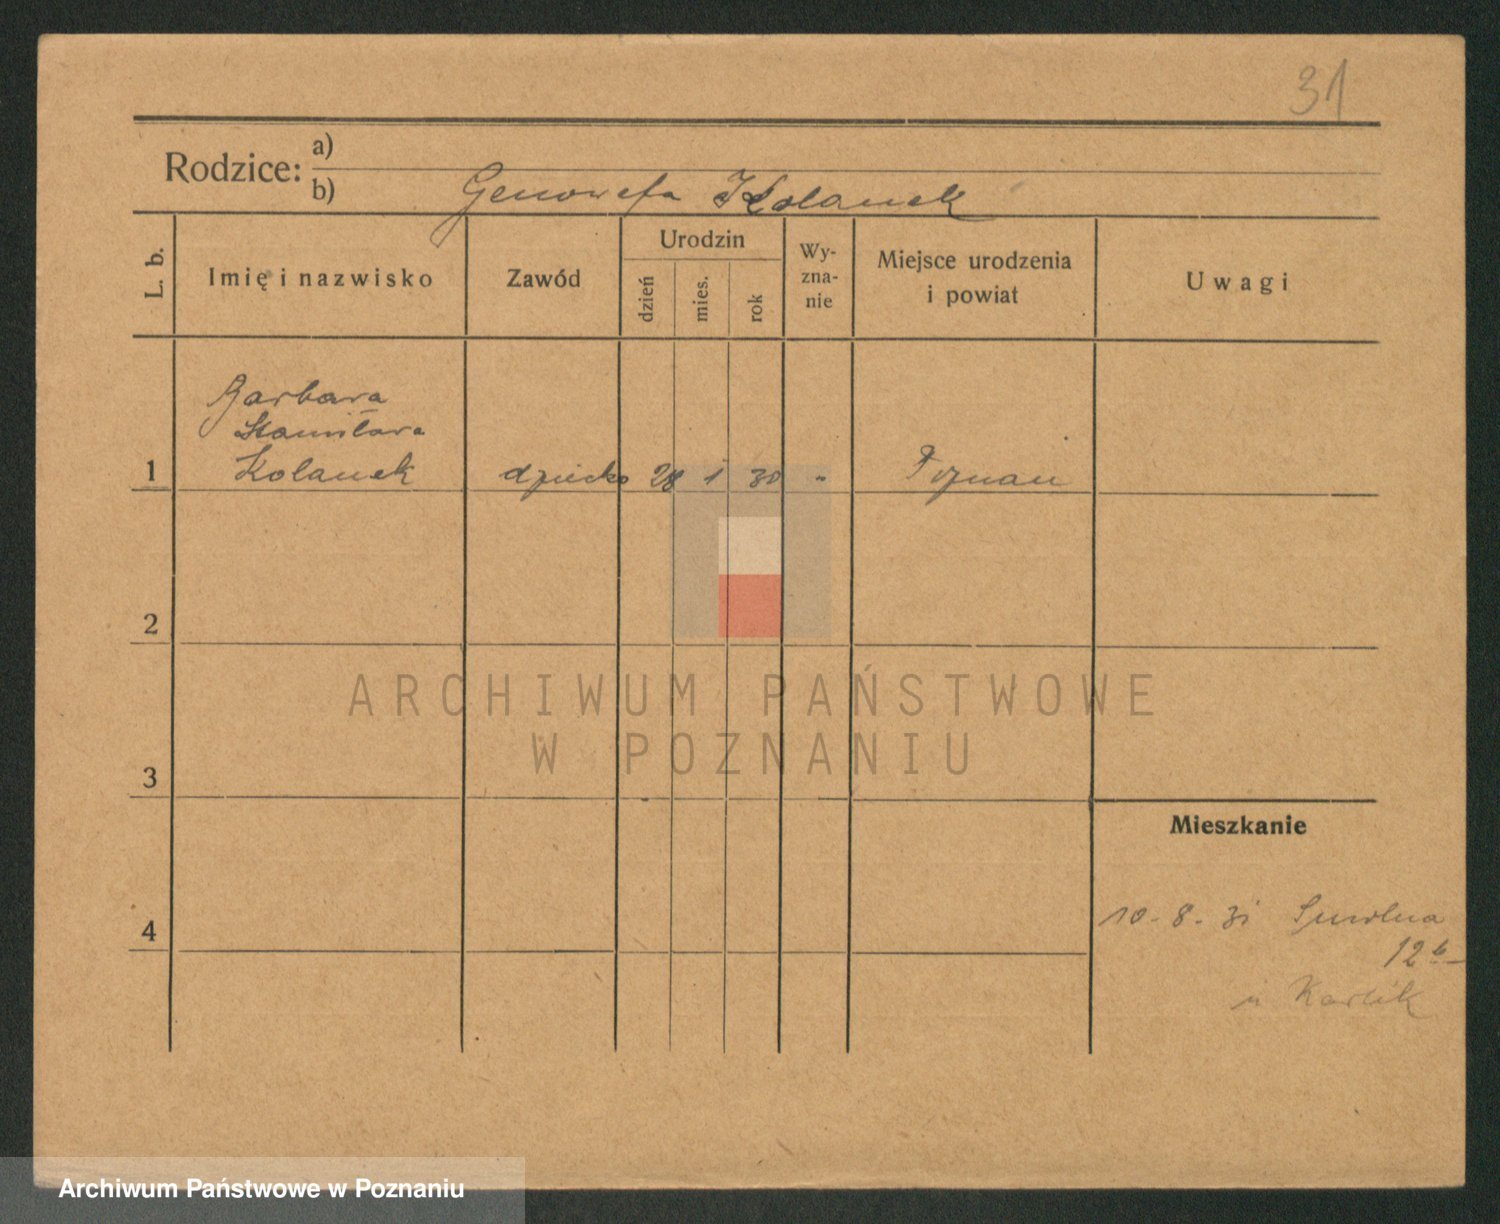 31
Rodzice: a)
b) Genowefa Kolanek
L. b.
Imię i nazwisko
Zawód
Urodzin
dzień
mies.
rok
Wy-
zna-
nie
Miejsce urodzenia
i powiat
Uwagi
Barbara
Kolanek
1 dziecko 28 1 30 - Poznań
2
3
4
Mieszkanie
10-8-31
12b
u Karlik
ARCHIWUM PAŃSTWOWE
W POZNANIU
Archiwum Państwowe w Poznaniu